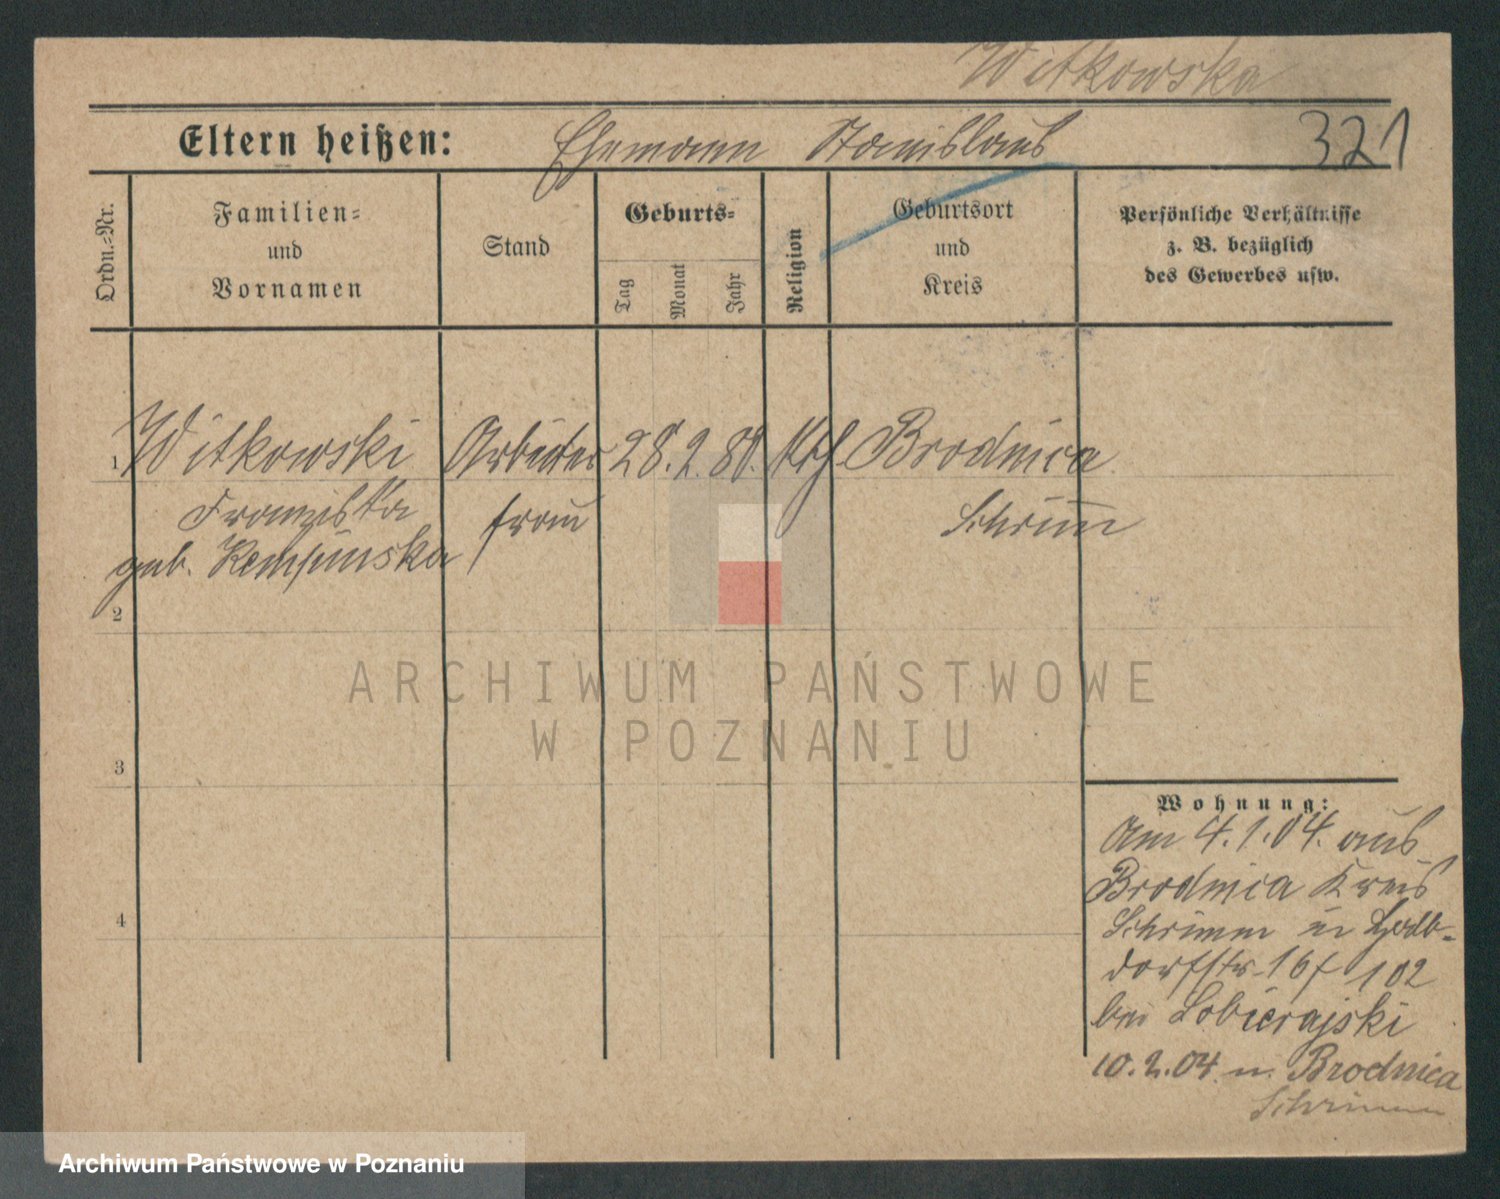 Witkowska
Eltern heißen: Ehemann Stanislaus 321
Ordn.=Nr.
Familien=
und
Vornamen
Stand
Geburts=
Tag
Monat
Jahr
Religion
Geburtsort
und
Kreis
Persönliche Verhältnisse
z. B. bezüglich
des Gewerbes usw.
1 Witkowski Arbeiter 28. 2. 80. kth. Brodnica
Franziska frau Schrimm
geb. Kempinska
2
ARCHIWUM PAŃSTWOWE
W POZNANIU
3
4
Wohnung:
Am 4.1.04. aus
Brodnica Kreis
Schrimm in
dorfstr. 16 f 102
bei Lobierajski
10.2.04. n. Brodnica
Schrimm
Archiwum Państwowe w Poznaniu